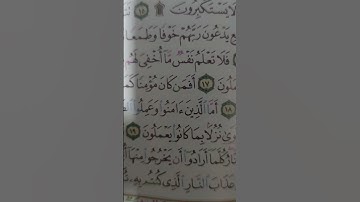 لَا يَسْتَكْبِرُونَ ۩ ١٥
يَدْعُونَ رَبَّهُمْ خَوْفًا وَطَمَعًا
فَلَا تَعْلَمُ نَفْسٌ مَّا أُخْفِيَ لَهُم
١٧ أَفَمَن كَانَ مُؤْمِنًا كَمَن
١٨ أَمَّا الَّذِينَ ءَامَنُوا وَعَمِلُوا
نُزُلًا بِمَا كَانُوا يَعْمَلُونَ ١٩
كُلَّمَا أَرَادُوا أَن يَخْرُجُوا مِنْهَا
عَذَابَ النَّارِ الَّذِي كُنتُم بِهِ